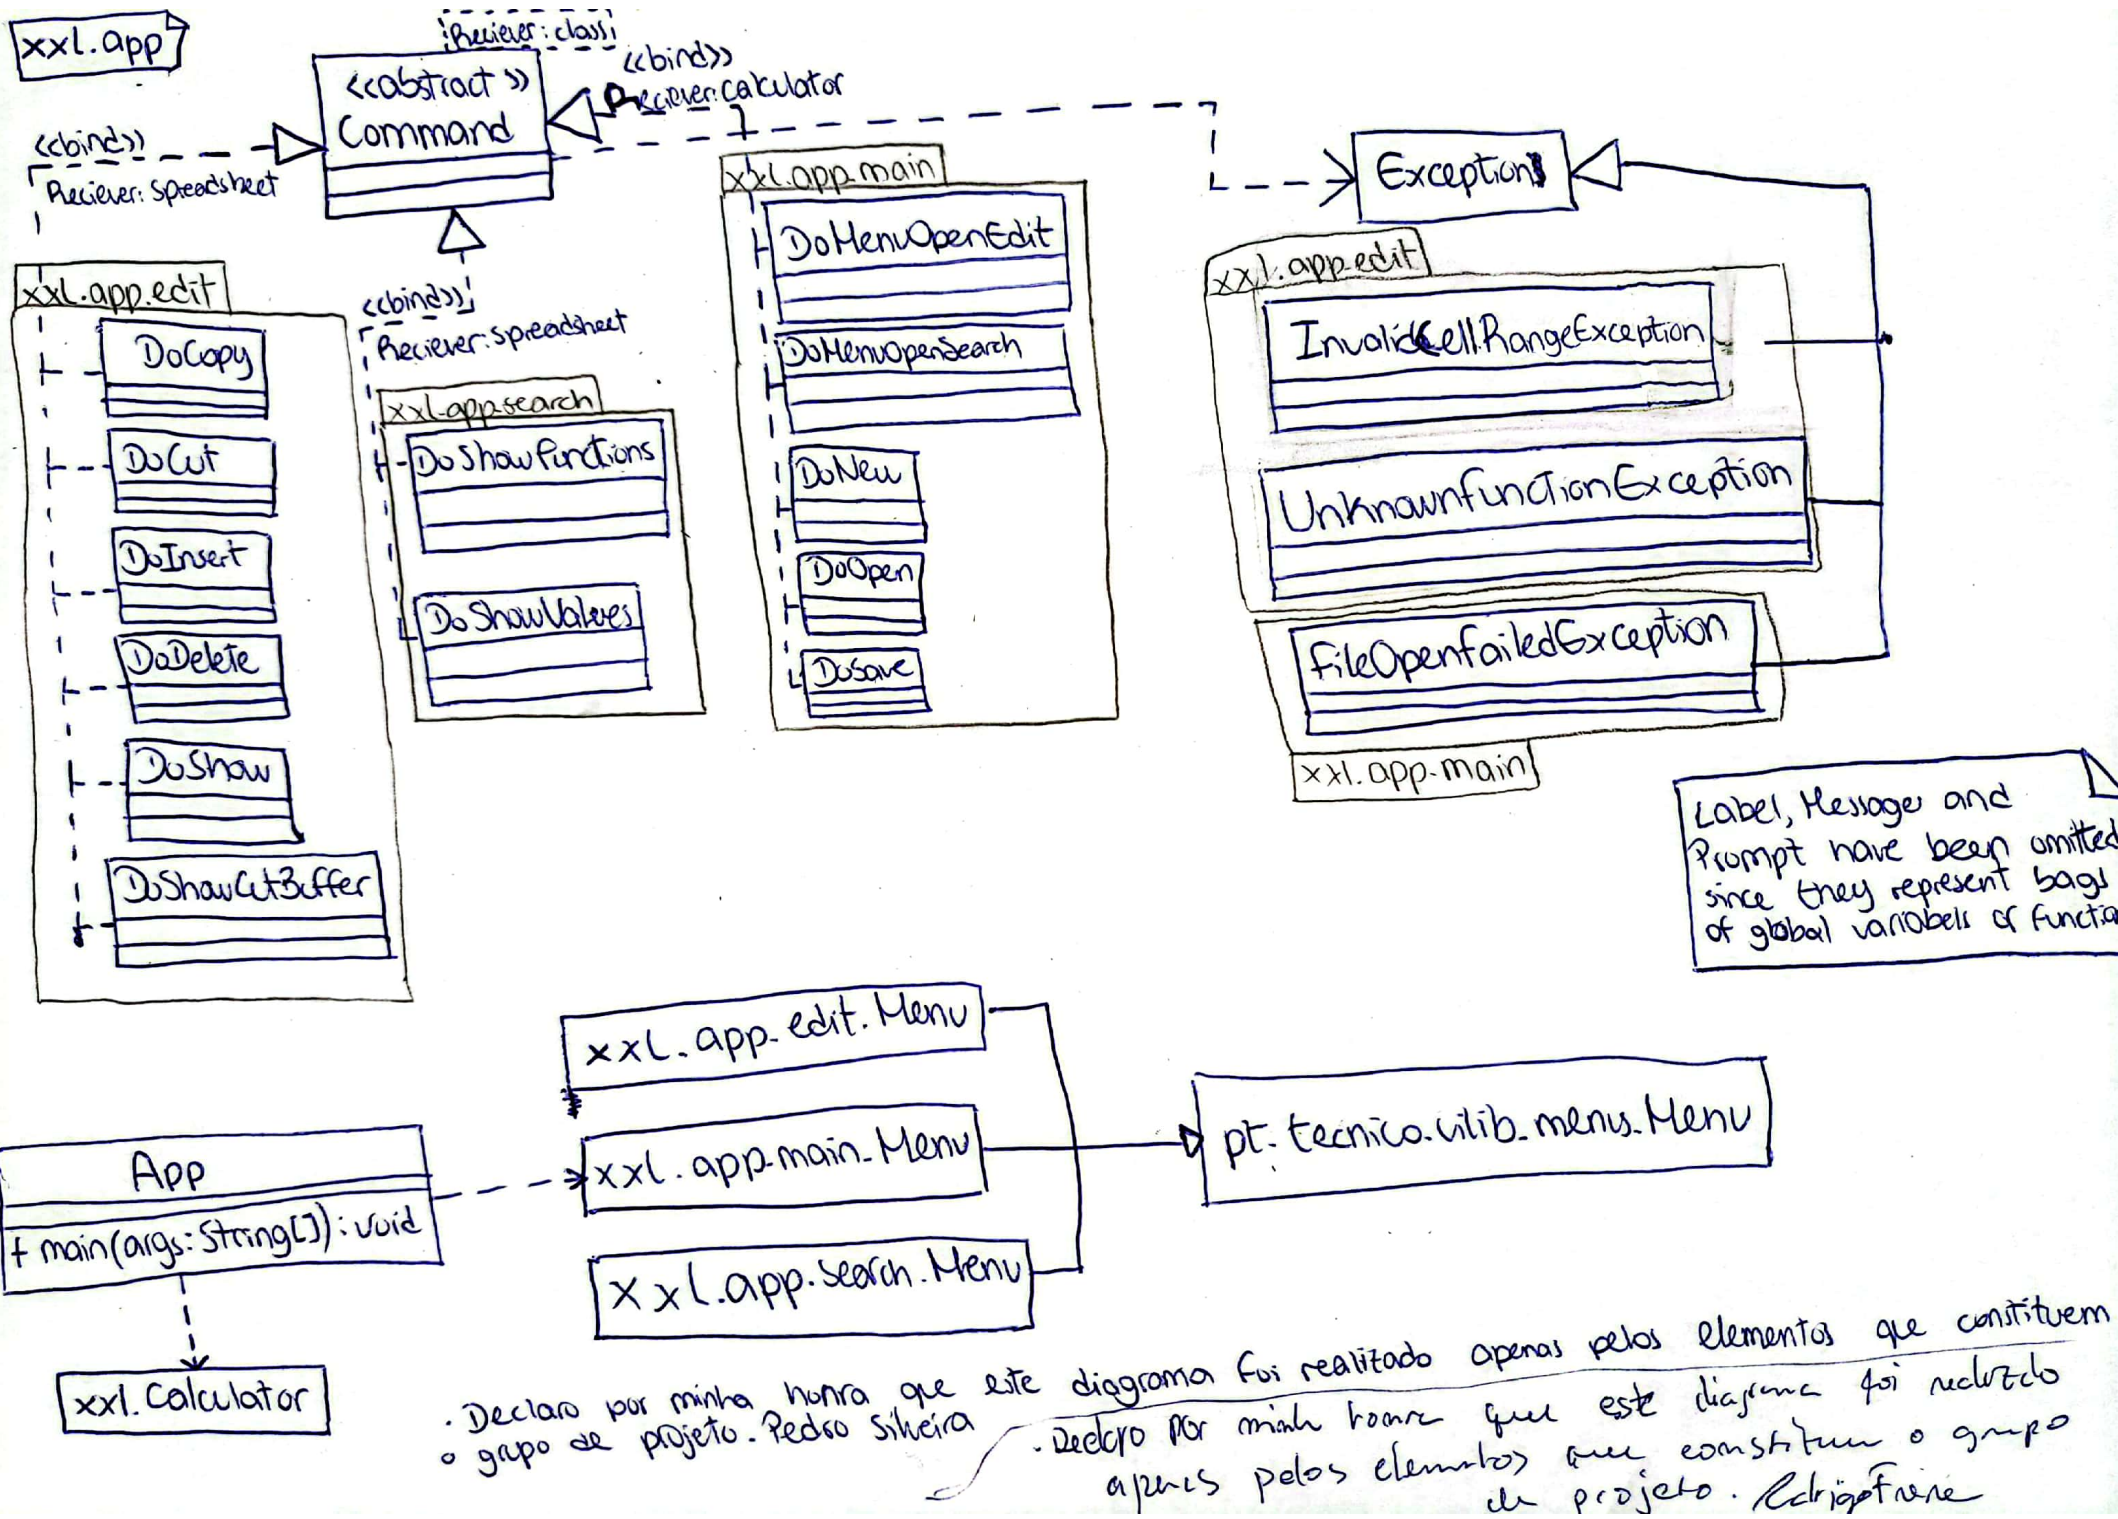 xxl.app
Reciever: class
<<abstract>>
Command
<<bind>>
Reciever: Calculator
<<bind>>
Reciever: Spreadsheet
<<bind>>
Reciever: Spreadsheet
xxl.app.edit
DoCopy
DoCut
DoInsert
DoDelete
DoShow
DoShowCutBuffer
xxl.app.search
DoShowFunctions
DoShowValues
xxl.app.main
DoMenuOpenEdit
DoMenuOpenSearch
DoNew
DoOpen
DoSave
Exception
xxl.app.edit
InvalidCellRangeException
UnknownFunctionException
FileOpenFailedException
xxl.app.main
Label, Message and
Prompt have been omitted
since they represent bags
of global variabels or
App
+ main(args: String[]): void
xxl.Calculator
xxl.app.edit.Menu
xxl.app.main.Menu
xxl.app.search.Menu
pt.tecnico.uilib.menus.Menu
. Declaro por minha honra que este diagrama foi realizado apenas pelos elementos que constituem
o grupo de projeto. Pedro Silveira
. Declaro por minha honra que este diagrama foi
apenas pelos elementos que constituem o grupo
de projeto. Rodrigo Freire